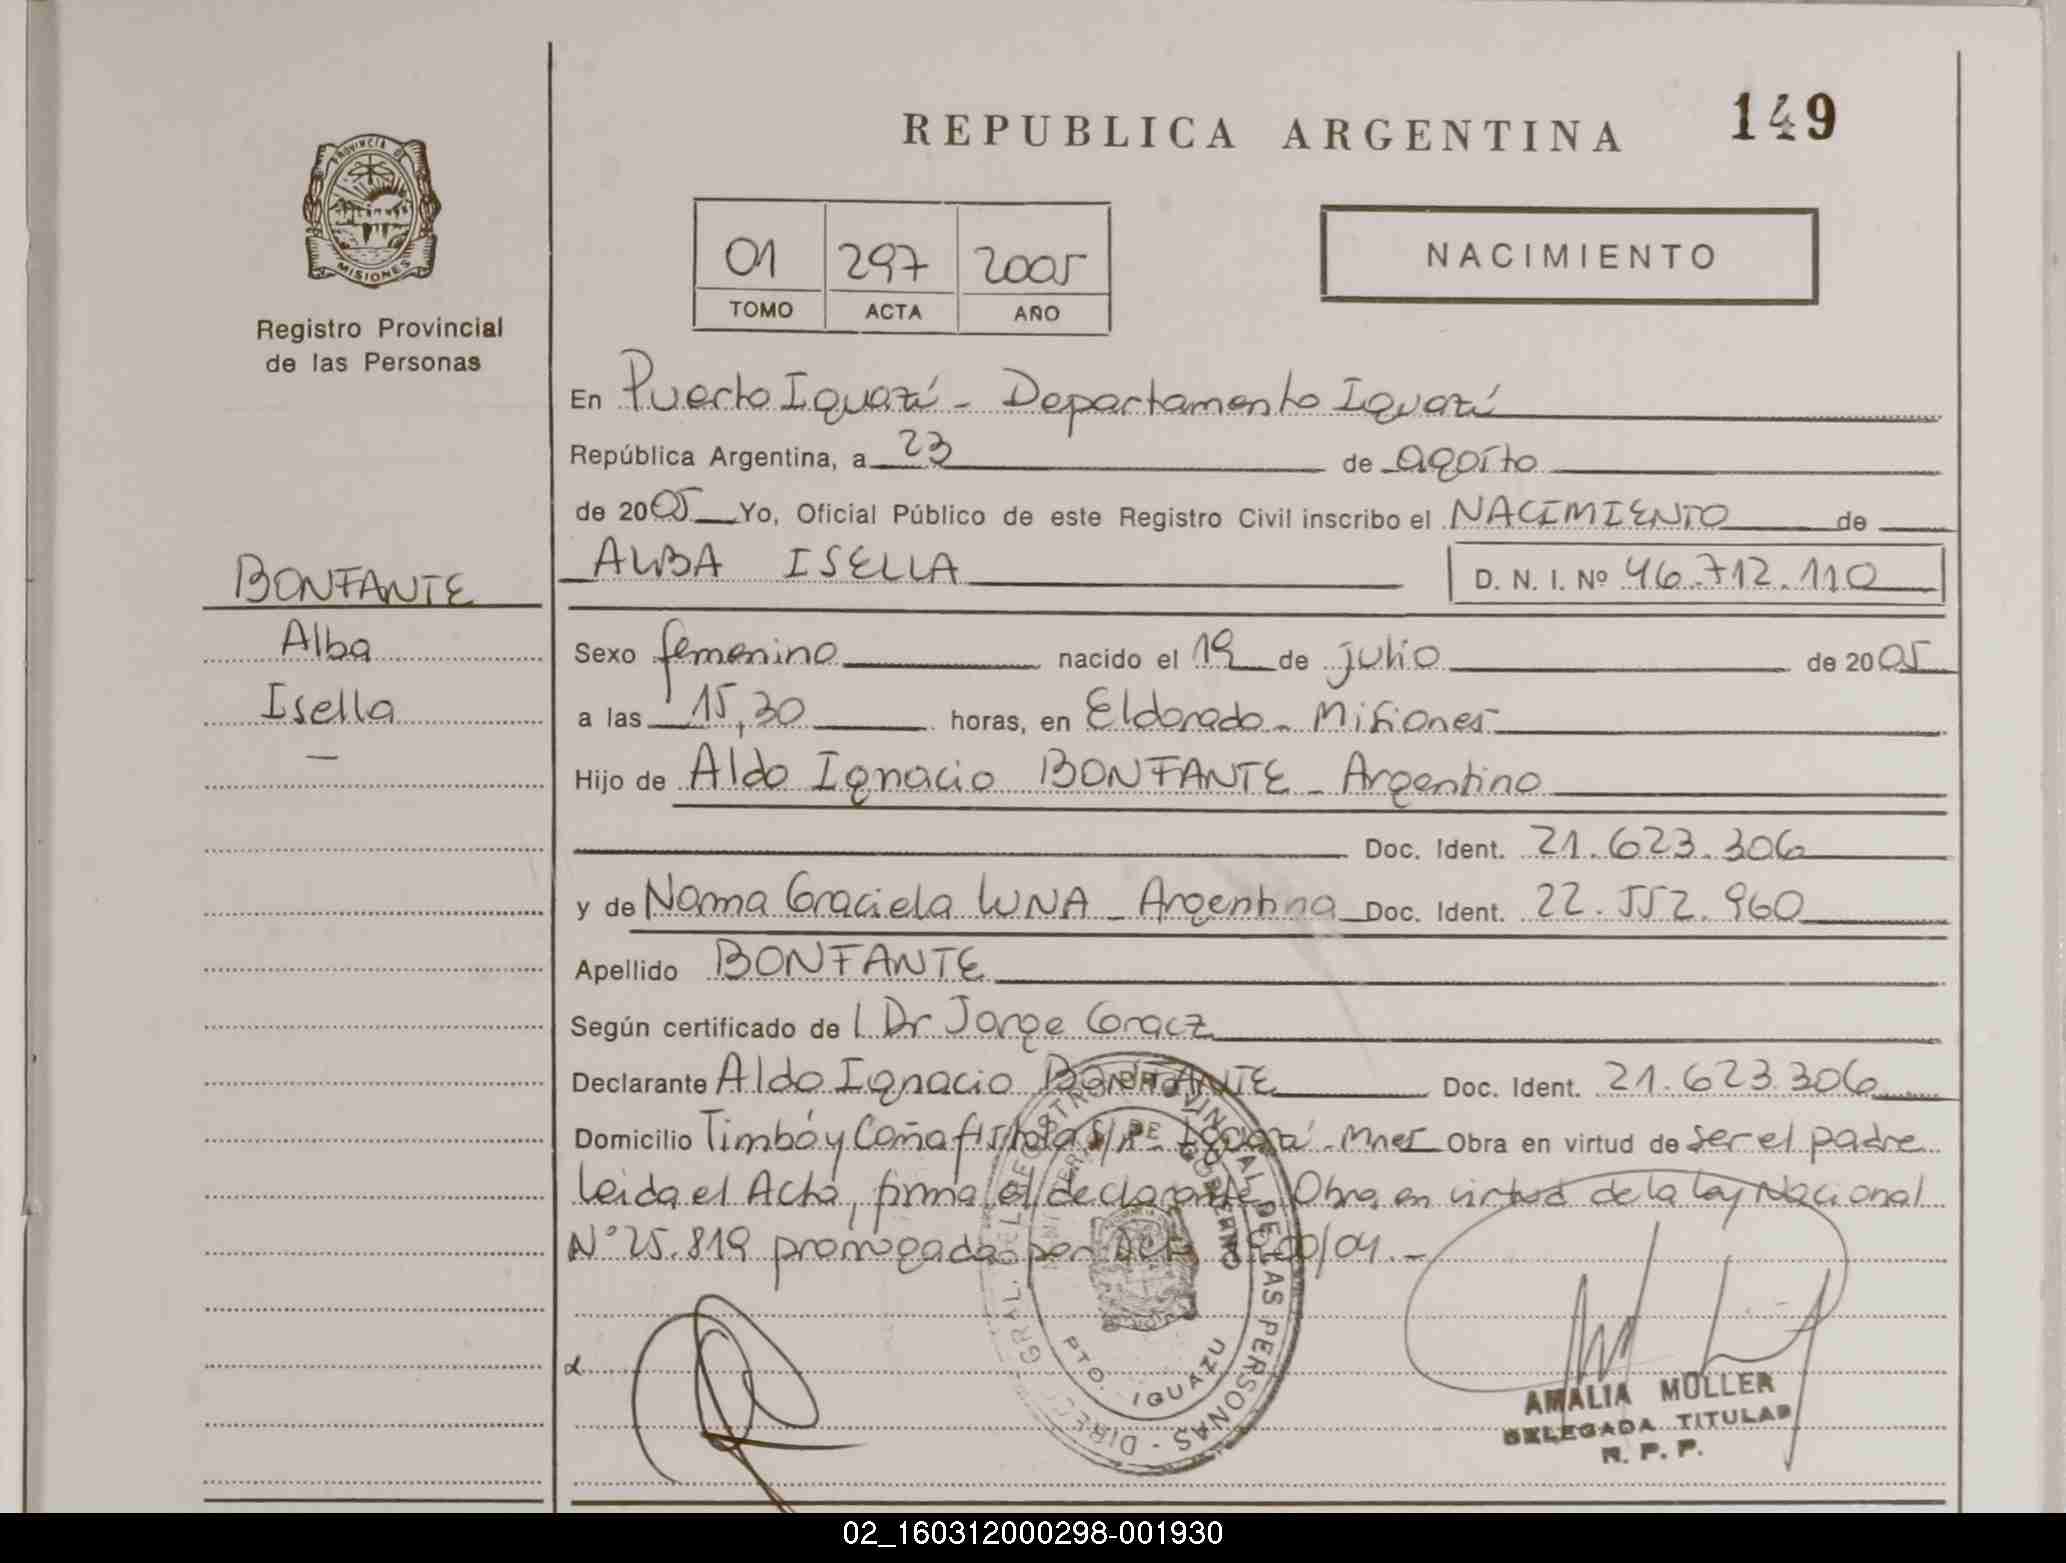 REPUBLICA ARGENTINA
149
PROVINCIA DE
MISIONES
Registro Provincial
de las Personas
01 297 2005
TOMO ACTA AÑO
NACIMIENTO
En Puerto Iguazú - Departamento Iguazú
República Argentina, a 23 de agosto
de 2005 Yo, Oficial Público de este Registro Civil inscribo el NACIMIENTO de
ALBA ISELLA D. N. I. Nº 46.712.110
BONFANTE
Alba
Isella
Sexo femenino nacido el 19 de julio de 2005
a las 15,30 horas, en Eldorado - Misiones
Hijo de Aldo Ignacio BONFANTE - Argentino
Doc. Ident. 21.623.306
y de Norma Graciela LUNA - Argentina Doc. Ident. 22.552.960
Apellido BONFANTE
Según certificado de l Dr Jorge
Declarante Aldo Ignacio BONFANTE Doc. Ident. 21.623.306
Domicilio Timbó y Cañafistola s/n - Iguazú - Mnes Obra en virtud de ser el padre
Leida el Acta, firma el declarante. Obra en virtud de la Ley Nacional
Nº 25.819 prorrogada por /04.-
DIREC. GRAL. DEL REGISTRO PROVINCIAL DE LAS PERSONAS -
MINISTERIO DE GOBIERNO
PTO. IGUAZU
AMALIA MULLER
DELEGADA TITULAR
R. P. P.
02_160312000298-001930